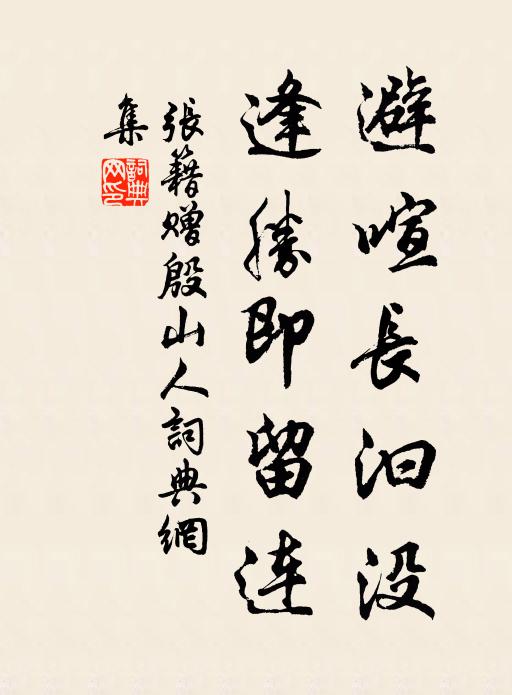 避喧長汩没
逢勝即留连
張籍赠殷山人詞典網
集
詞典网印